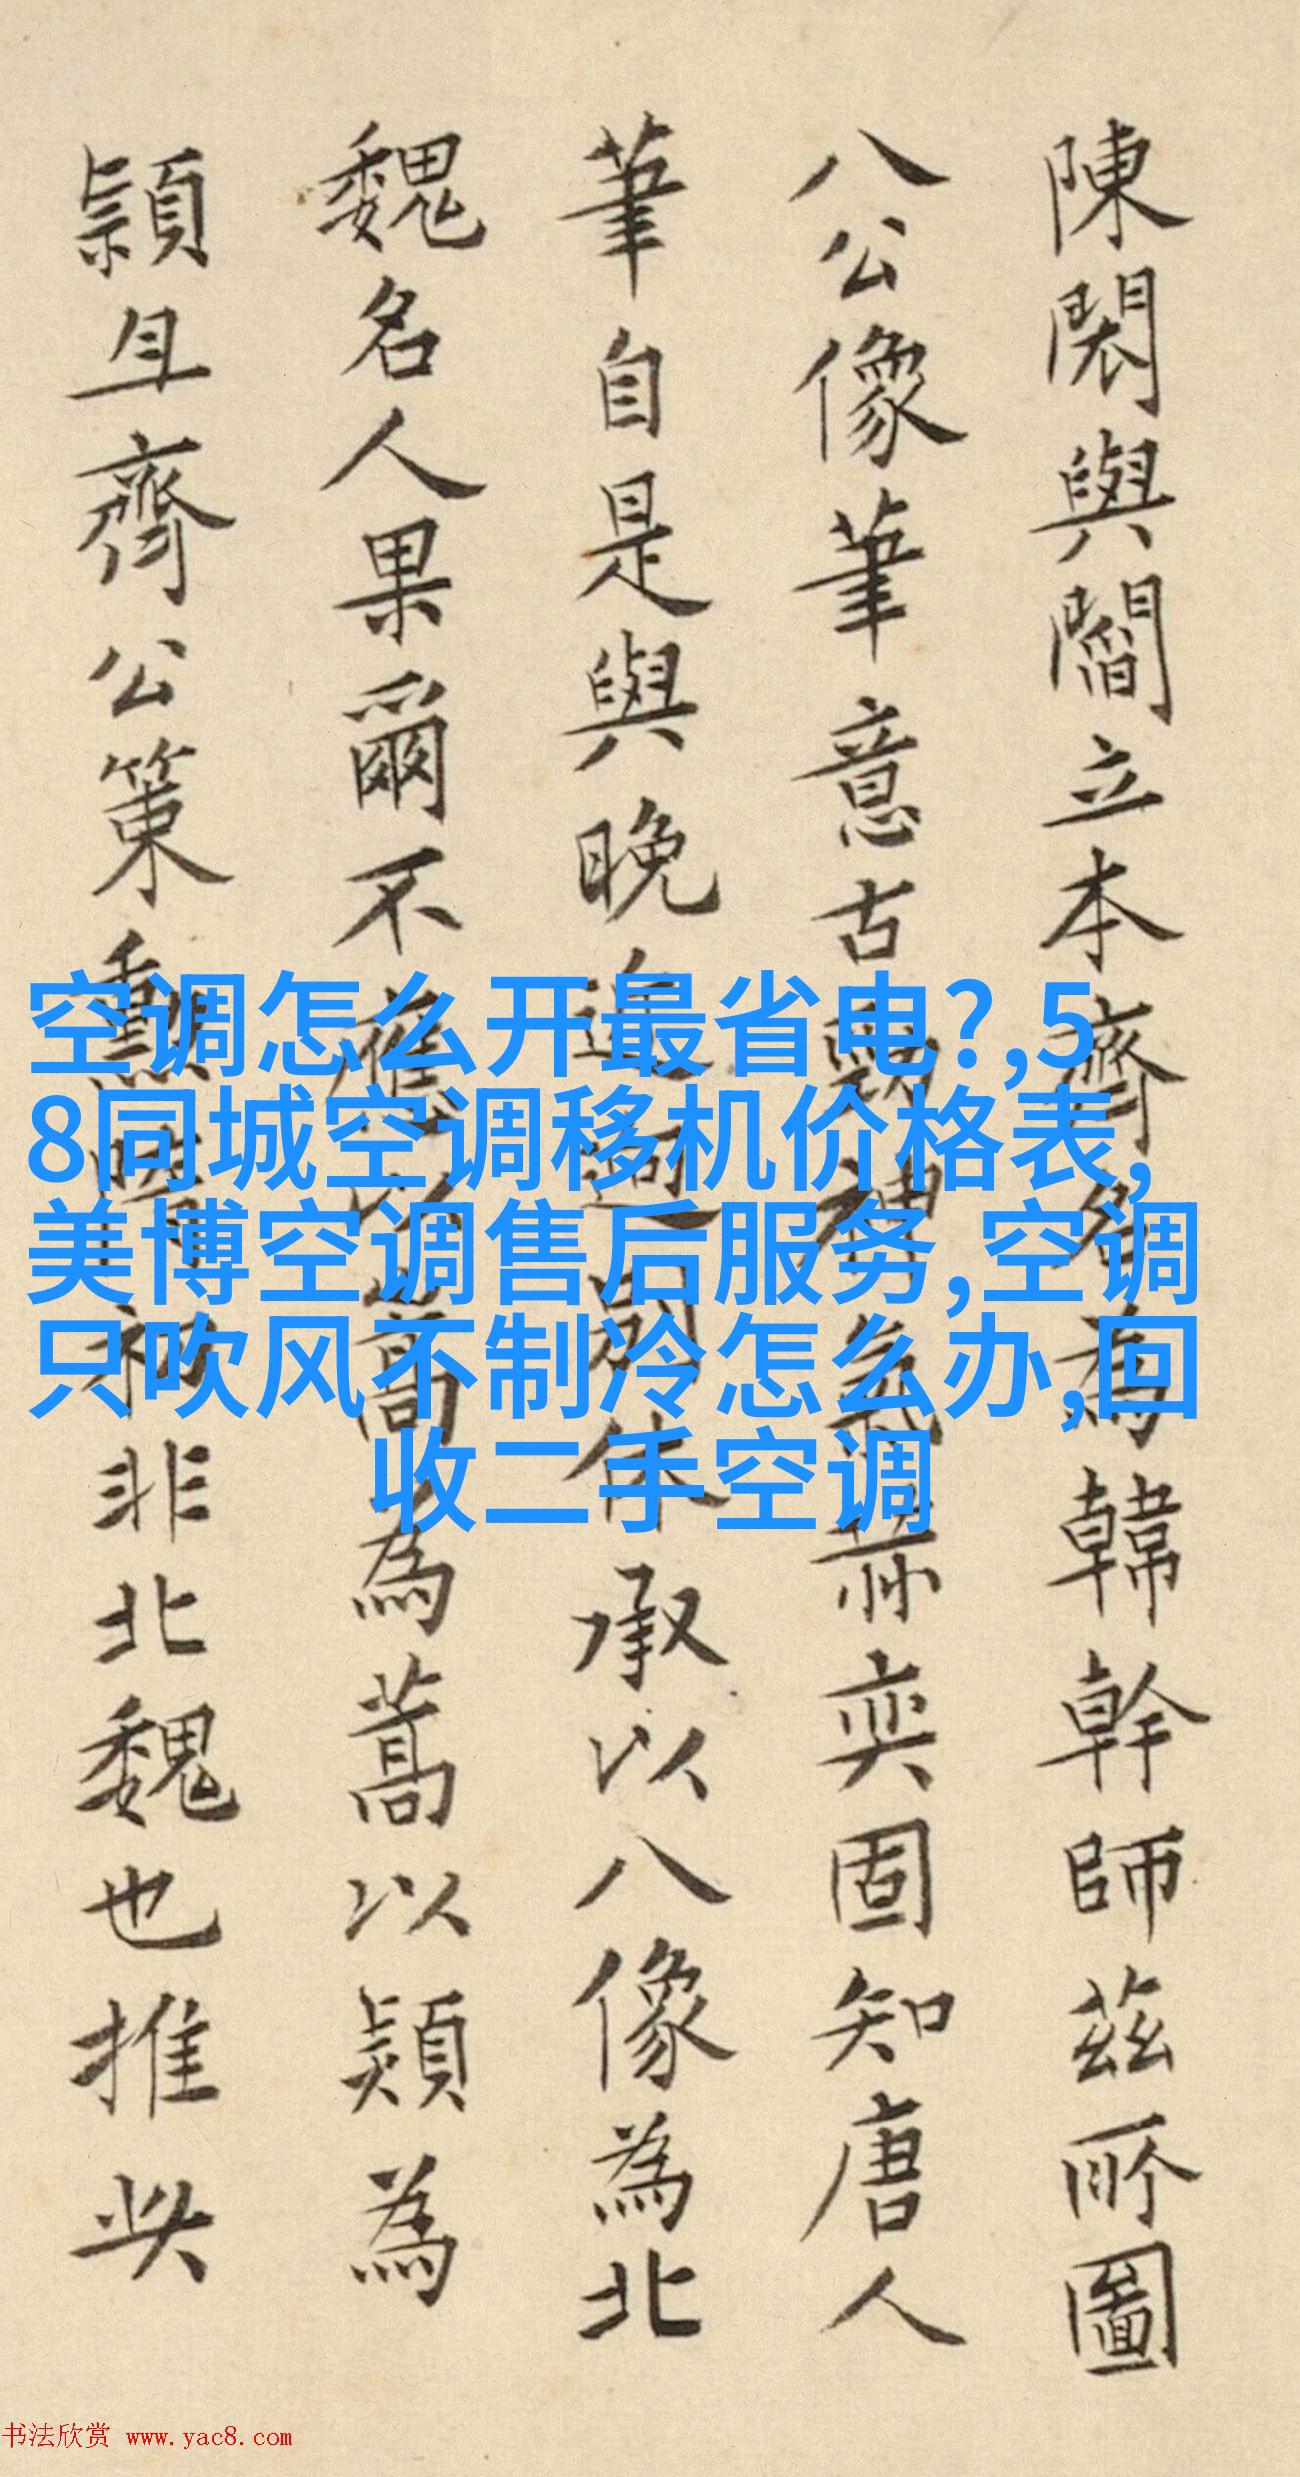 陳閎與閻立本齊名為韓幹師茲所圖
八公像筆意古勁神氣赫奕固知唐人
筆自是與晚迥別休承以八像為北
魏名人果爾不應以為蒿以潁為
頴且齊公策勳隋初非北魏也推
空调怎么开最省电?,5
8同城空调移机价格表,
美博空调售后服务,空调
只吹风不制冷怎么办,回
收二手空调
书法欣赏 www.yac8.com